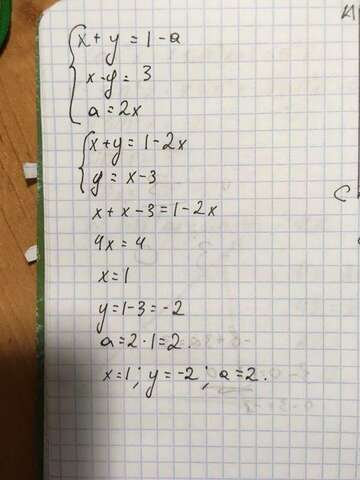 x + y = 1 - a
x - y = 3
a = 2x
x + y = 1 - 2x
y = x - 3
x + x - 3 = 1 - 2x
4x = 4
x = 1
y = 1 - 3 = -2
a = 2 · 1 = 2.
x = 1; y = -2; a = 2.
C